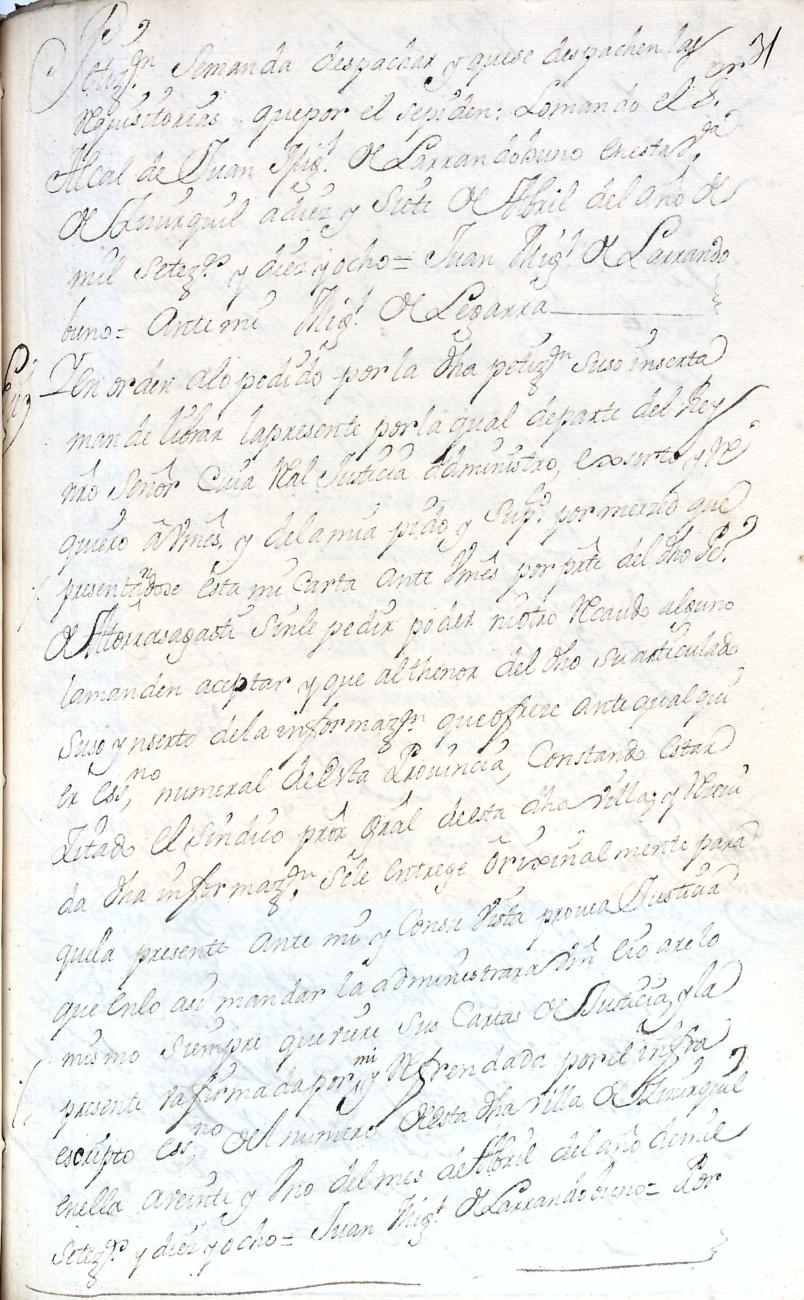 31
Petiz.on Semanda despachar y quese despachen las
requisitorias que por el sepiden: Lomando el S.or
Alcalde Juan Mig.l de Larrandobuno en esta V.a
de Azurquil a diez y Siete de Abril del año de
mil Setez.os y diez y ocho = Juan Mig.l de Larrando
buno = Ante mi Mig.l de Legarra
Y en orden alo pedido por la dha petiz.on suso inserta
mande librar la presente por la qual de parte del Rey
nro Señor Cuia Real Justicia administro, exsorto y re
quiero a Vmes, y dela mia pido y Sup.co por merzed que
presentandose esta mi Carta ante Vmes por pte del dho Pe.o
de Atorrasagasti sinle pedir poder niotro recaudo alguno
lamanden aceptar y que al thenor del dho su articulado
suso ynserto dela informaz.on que ofreze ante qual qui
er Ess.no numeral de esta Provincia, Constando estar
Zitado el Sindico pror Gral de esta dha Villa, y reziui
da dha informaz.on Sele entrege Orixinalmente para
quela presente ante mi y Consu Vista provea Justicia
que enlo asi mandar la administraran Vm.s Eio are lo
mismo siempre queviere sus Cartas de Justicia, y la
presente ba firmada por mi y Refrendada por el infra
escripto Ess.no del numero de esta dha Villa de Azurquil
en ella a veinte y Uno del mes de Abril del año de mil
Setez.os y diez y ocho = Juan Mig.l de Larrandobuno = Por